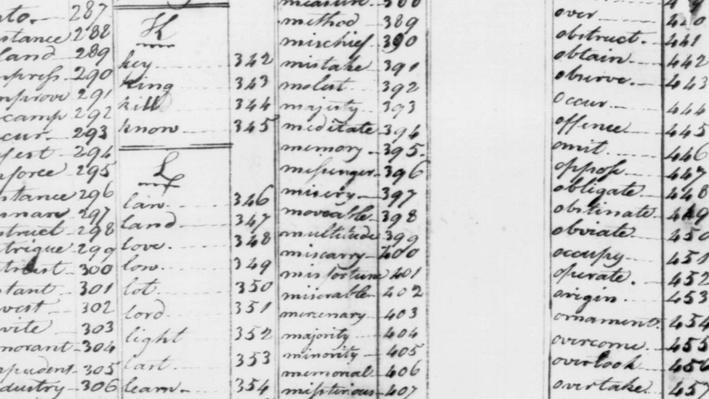 287
stance 288
land 289
mpress 290
mprove 291
camp 292
cur 293
fest 294
force 295
stance 296
297
struct 298
trigue 299
trust 300
stant 301
vest 302
vite 303
norant 304
mpudent 305
dustry 306
K
key 342
king 343
kill 344
know 345
L
law 346
land 347
love 348
low 349
lot 350
lord 351
light 352
last 353
learn 354
measure 388
method 389
mischief 390
mistake 391
molest 392
majesty 393
meditate 394
memory 395
messenger 396
misery 397
moveable 398
multitude 399
miscarry 400
misfortune 401
miserable 402
mercenary 403
majority 404
minority 405
memorial 406
misterious 407
over
obstruct 441
obtain 442
observe 443
occur 444
offence 445
omit 446
oppose 447
obligate 448
obstinate 449
obviate 450
occupy 451
operate 452
origin 453
ornament 454
overcome 455
overlook 456
overtake 457